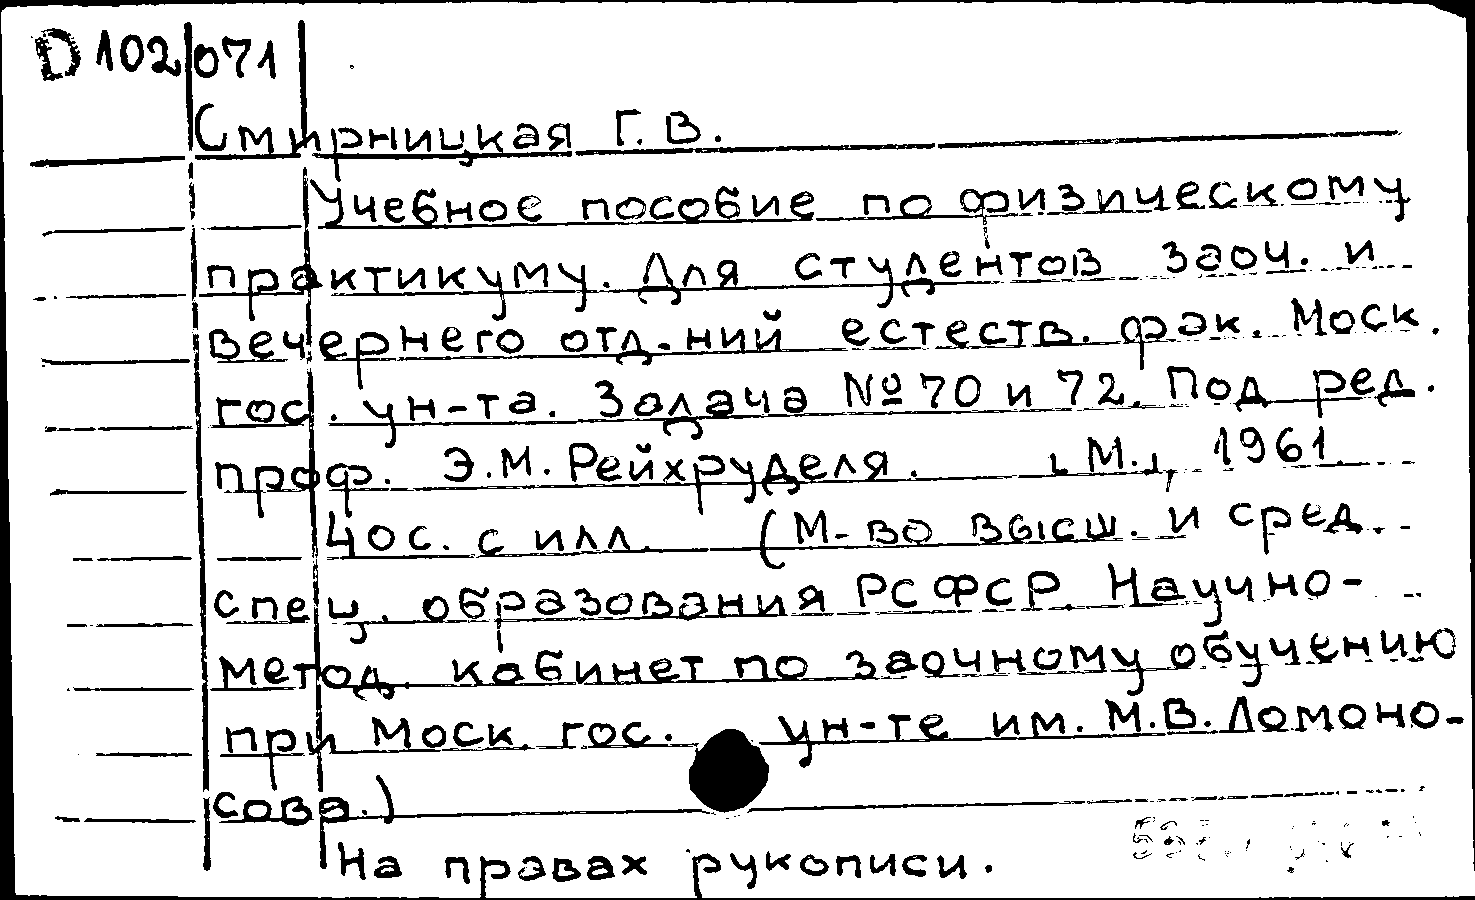 D 102 071
Смирницкая Г. В.
Учебное пособие по физическому
практикуму. Для студентов заоч. и
вечернего отд-ний естеств. фак. Моск.
гос. ун-та. Задача № 70 и 72. Под ред.
проф. Э.М. Рейхруделя. [М.], 1961.
40 с. с илл. (М-во высш. и сред.
спец. образования РСФСР. Научно-
метод. кабинет по заочному обучению
при Моск. гос. ун-те им. М.В. Ломоно-
сова.)
На правах рукописи.